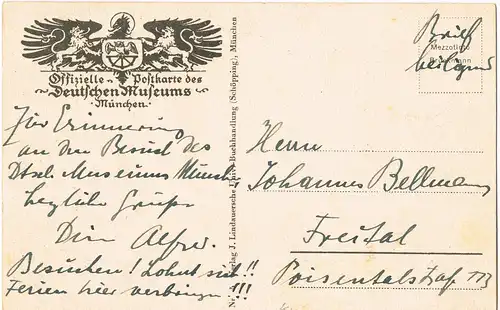 Offizielle Postkarte des
Deutschen Museums
München.
Zur Erinnerung
an den Besuch des
Dtsch. Museums Münch.,
herzliche Grüße
Dein Alfred.
Besuchen! Lohnt sich!!
Ferien hier verbringen!!!
Verlag J. Lindauersche Buchhandlung (Schöpping), München
Brief
Mezzotinto
beilegend
Herrn
Johannes Bellmann
Freital
Poisentalstraße